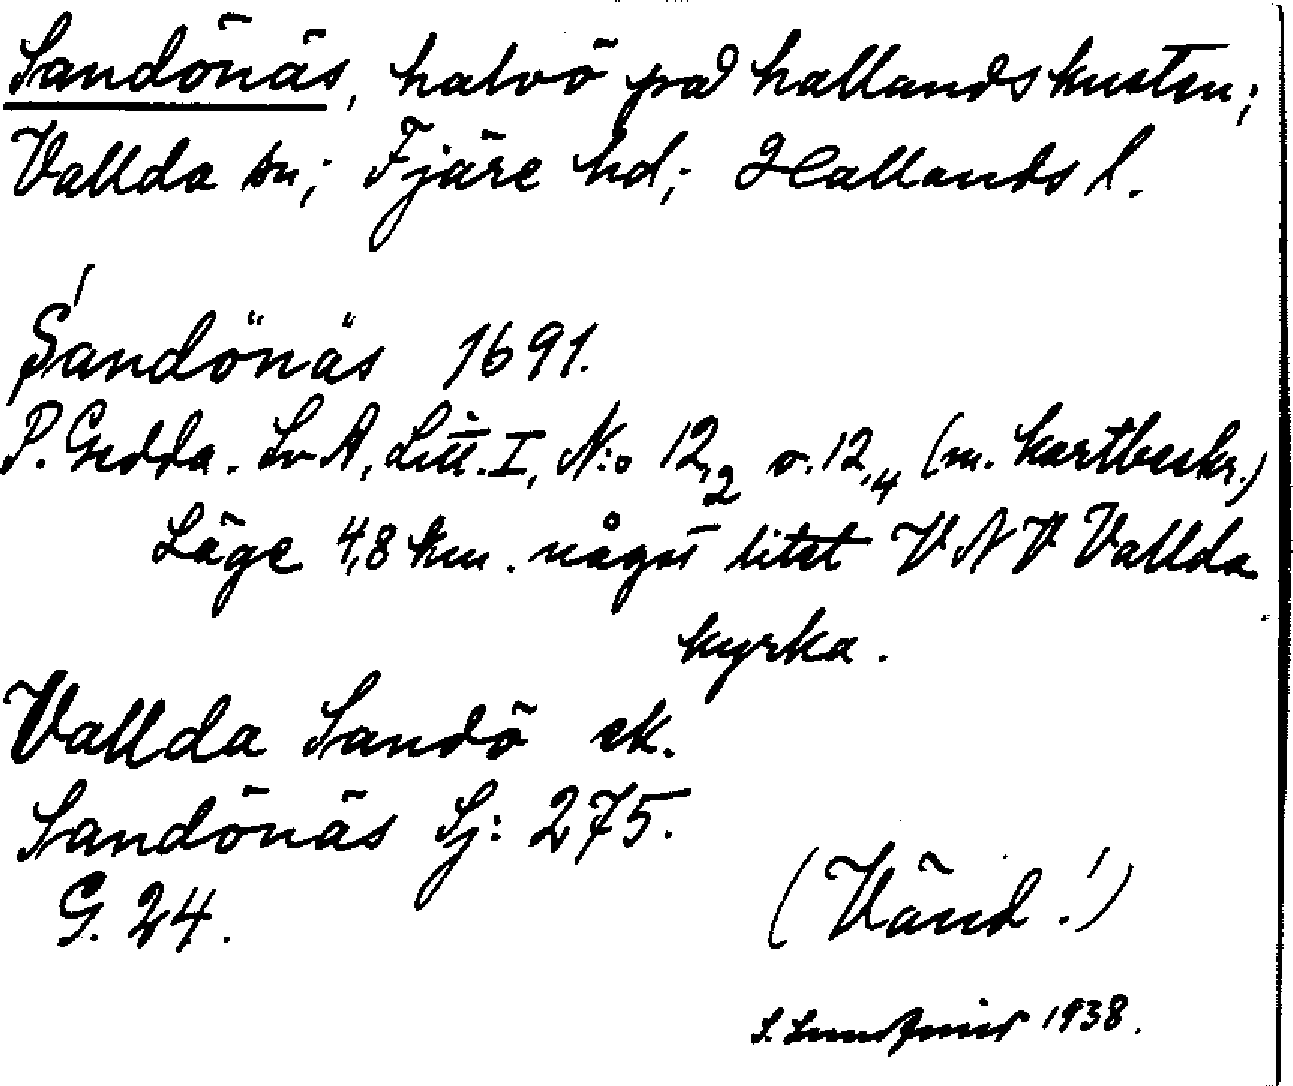 Sandönäs, halvö på hallandskusten;
Vallda sn; Fjäre hd; Hallands l.
Sandönäs 1691.
P. Gedda. SvA, Litt. I, N:o 12,2 o. 12,4 (m. kartbeskr.)
Läge 4,8 km. något litet VNV Vallda
kyrka.
Vallda Sandö ek.
Sandönäs Sj: 275.
G. 24.
(Vänd!)
S. 1938.